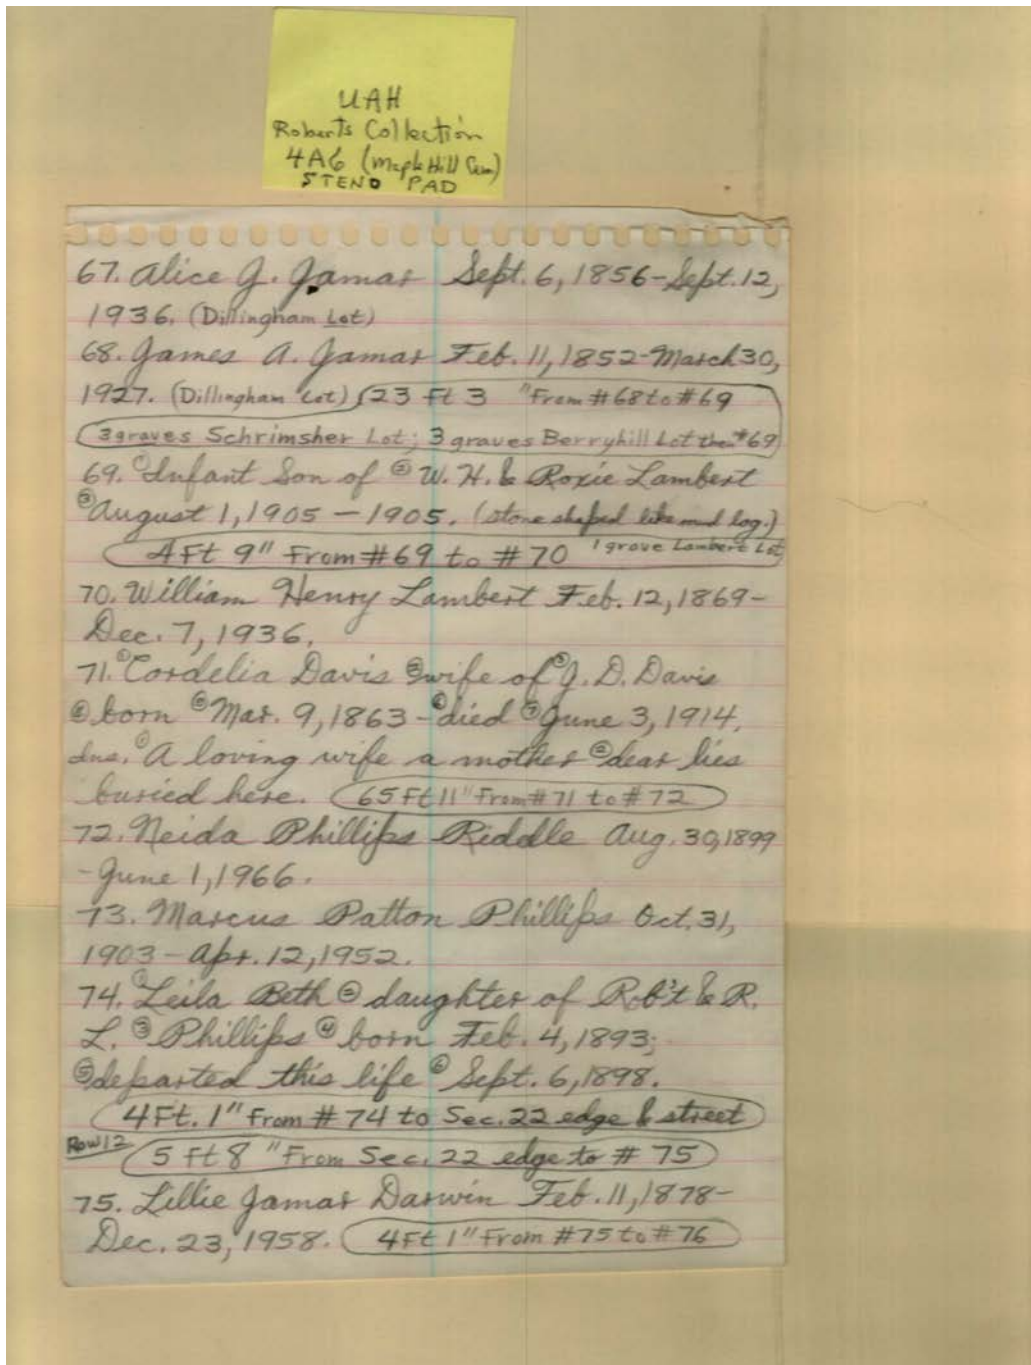 UAH
Roberts Collection
4A6 (Maple Hill Cem)
STENO PAD
67. Alice J. Jamar Sept. 6, 1856-Sept. 12,
1936. (Dillingham Lot)
68. James A. Jamar Feb. 11, 1852-March 30,
1927. (Dillingham Lot) 23 ft 3 " From #68 to #69
3 graves Schrimsher Lot; 3 graves Berryhill Lot then #69
69. ① Infant Son of ② W. H. & Roxie Lambert
③ August 1, 1905 - 1905. (stone shaped like mud log.)
4 Ft 9" From #69 to #70 1 grave Lambert Lot
70. William Henry Lambert Feb. 12, 1869-
Dec. 7, 1936.
71. ① Cordelia Davis ② wife of ③ J. D. Davis
④ born ⑤ Mar. 9, 1863 - ⑥ died ⑦ June 3, 1914.
Ins. ① A loving wife a mother ② dear lies
buried here. 65 Ft 11" From #71 to #72
72. Neida Phillips Riddle Aug. 30, 1899
- June 1, 1966.
73. Marcus Patton Phillips Oct. 31,
1903 - Apr. 12, 1952.
74. ① Leila Beth ② daughter of Rob't & R.
L. ③ Phillips ④ born Feb. 4, 1893;
⑤ departed this life ⑥ Sept. 6, 1898.
4 Ft. 1" From #74 to Sec. 22 edge & street
Row 12 5 ft 8 " From Sec. 22 edge to # 75
75. Lillie Jamar Darwin Feb. 11, 1878-
Dec. 23, 1958. 4 Ft 1" From #75 to #76